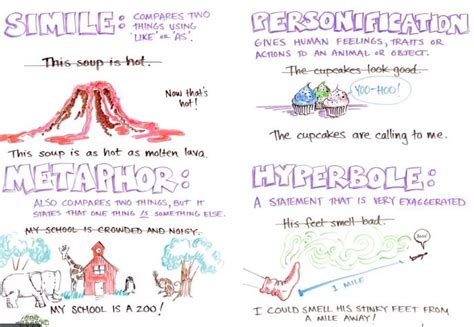 SIMILE:
COMPARES TWO
THINGS USING
'LIKE' OR 'AS'.
This soup is hot.
Now that's
hot!
This soup is as hot as molten lava.
METAPHOR:
ALSO COMPARES TWO THINGS, BUT IT
STATES THAT ONE THING IS SOMETHING ELSE.
MY SCHOOL IS CROWDED AND NOISY.
MY SCHOOL IS A ZOO!
PERSONIFICATION
GIVES HUMAN FEELINGS, TRAITS OR
ACTIONS TO AN ANIMAL OR OBJECT.
The cupcakes look good.
YOO-HOO!
The cupcakes are calling to me.
HYPERBOLE:
A STATEMENT THAT IS VERY EXAGGERATED
His feet smell bad.
1 MILE
I COULD SMELL HIS STINKY FEET FROM
A MILE AWAY!